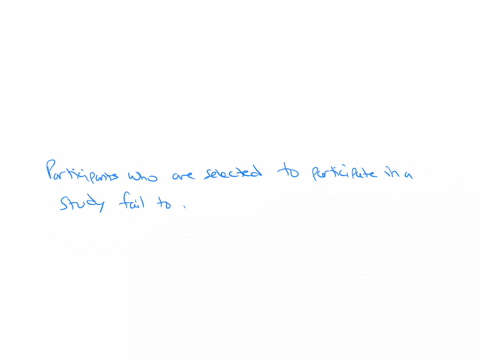 Participants who are selected to participate in a
study fail to .